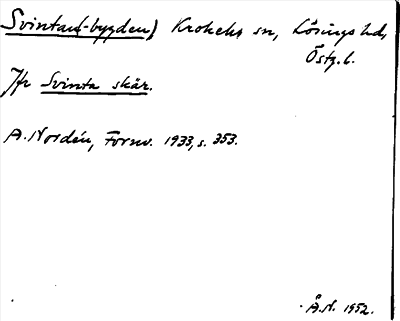 Svintan(-bygden) Krokeks sn, Lösings hd,
Östg. l.
Jfr Svinta skär.
A. Nordén, Fornv. 1933, s. 353.
Å.N. 1952.